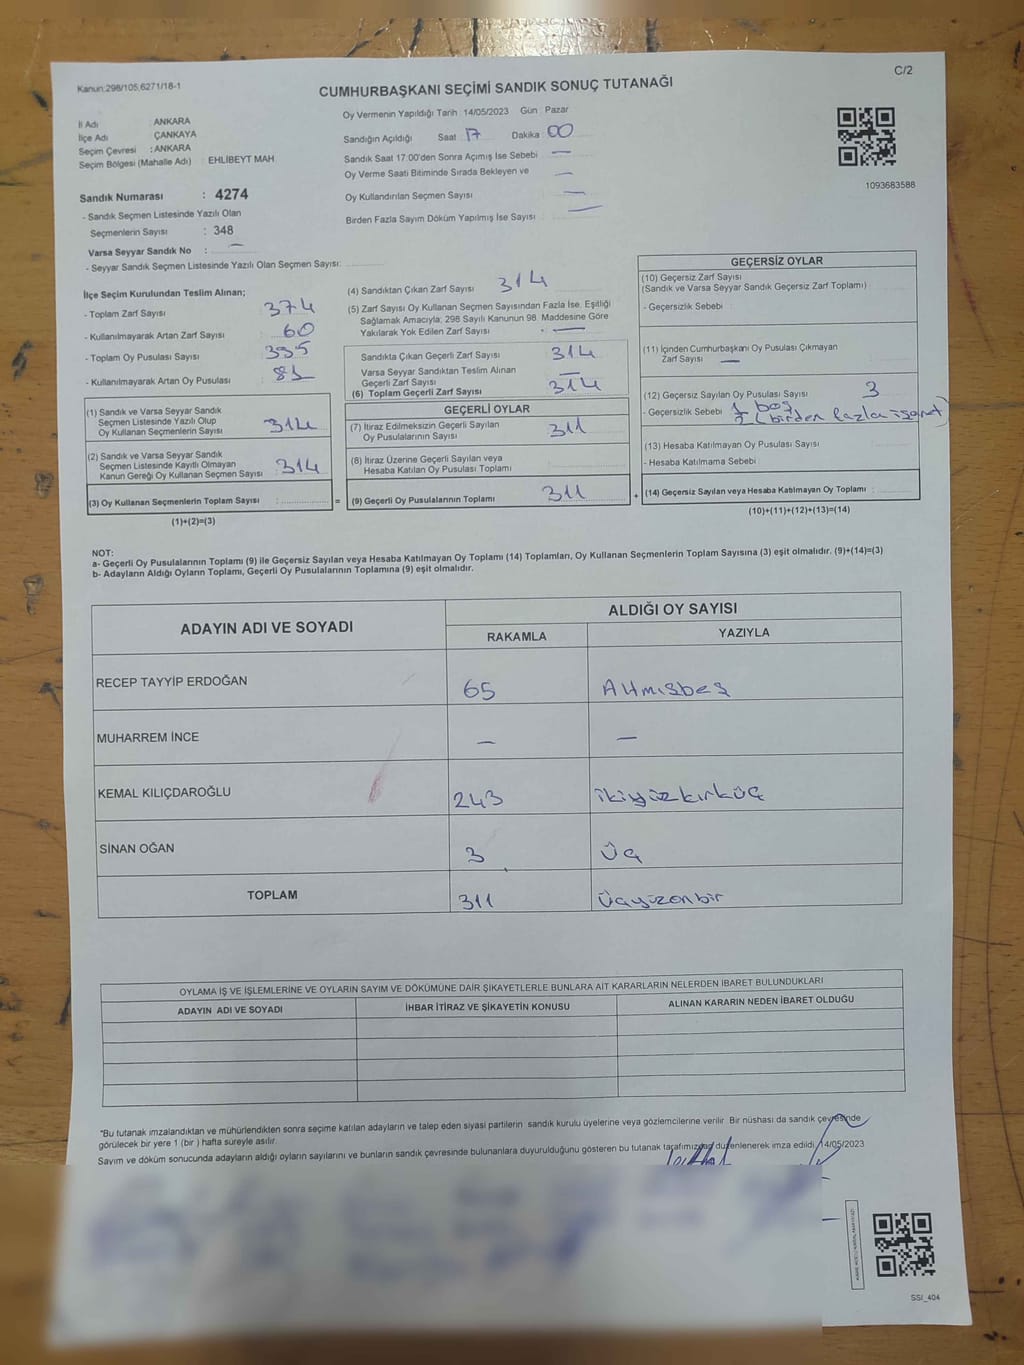 Kanun:298/105,6271/18-1
C/2
CUMHURBAŞKANI SEÇİMİ SANDIK SONUÇ TUTANAĞI
İl Adı ANKARA
İlçe Adı ÇANKAYA
Seçim Çevresi : ANKARA
Seçim Bölgesi (Mahalle Adı) : EHLİBEYT MAH.
Sandık Numarası : 4274
- Sandık Seçmen Listesinde Yazılı Olan
Seçmenlerin Sayısı : 348
Varsa Seyyar Sandık No : —
- Seyyar Sandık Seçmen Listesinde Yazılı Olan Seçmen Sayısı:
Oy Vermenin Yapıldığı Tarih 14/05/2023 Gün Pazar
Sandığın Açıldığı Saat 17 Dakika 00
Sandık Saat 17.00'den Sonra Açımış İse Sebebi —
Oy Verme Saati Bitiminde Sırada Bekleyen ve —
Oy Kullandırılan Seçmen Sayısı —
Birden Fazla Sayım Döküm Yapılmış İse Sayısı —
1093683588
İlçe Seçim Kurulundan Teslim Alınan;
- Toplam Zarf Sayısı 374
- Kullanılmayarak Artan Zarf Sayısı 60
- Toplam Oy Pusulası Sayısı 395
- Kullanılmayarak Artan Oy Pusulası : 81
(1) Sandık ve Varsa Seyyar Sandık
Seçmen Listesinde Yazılı Olup
Oy Kullanan Seçmenlerin Sayısı 314
(2) Sandık ve Varsa Seyyar Sandık
Seçmen Listesinde Kayıtlı Olmayan
Kanun Gereği Oy Kullanan Seçmen Sayısı 314
(3) Oy Kullanan Seçmenlerin Toplam Sayısı :
=
(1)+(2)=(3)
(4) Sandıktan Çıkan Zarf Sayısı 314
(5) Zarf Sayısı Oy Kullanan Seçmen Sayısından Fazla İse, Eşitliği
Sağlamak Amacıyla; 298 Sayılı Kanunun 98. Maddesine Göre
Yakılarak Yok Edilen Zarf Sayısı —
Sandıkta Çıkan Geçerli Zarf Sayısı 314
Varsa Seyyar Sandıktan Teslim Alınan
Geçerli Zarf Sayısı —
(6) Toplam Geçerli Zarf Sayısı 314
GEÇERLİ OYLAR
(7) İtiraz Edilmeksizin Geçerli Sayılan
Oy Pusulalarının Sayısı 311
(8) İtiraz Üzerine Geçerli Sayılan veya
Hesaba Katılan Oy Pusulası Toplamı
(9) Geçerli Oy Pusulalarının Toplamı 311
+
GEÇERSİZ OYLAR
(10) Geçersiz Zarf Sayısı
(Sandık ve Varsa Seyyar Sandık Geçersiz Zarf Toplamı)
- Geçersizlik Sebebi
(11) İçinden Cumhurbaşkanı Oy Pusulası Çıkmayan
Zarf Sayısı —
(12) Geçersiz Sayılan Oy Pusulası Sayısı 3
- Geçersizlik Sebebi 1 boş
2 (birden fazla işaret)
(13) Hesaba Katılmayan Oy Pusulası Sayısı
- Hesaba Katılmama Sebebi
(14) Geçersiz Sayılan veya Hesaba Katılmayan Oy Toplamı :
(10)+(11)+(12)+(13)=(14)
NOT:
a- Geçerli Oy Pusulalarının Toplamı (9) ile Geçersiz Sayılan veya Hesaba Katılmayan Oy Toplamı (14) Toplamları, Oy Kullanan Seçmenlerin Toplam Sayısına (3) eşit olmalıdır. (9)+(14)=(3)
b- Adayların Aldığı Oyların Toplamı, Geçerli Oy Pusulalarının Toplamına (9) eşit olmalıdır.
ADAYIN ADI VE SOYADI ALDIĞI OY SAYISI
RAKAMLA YAZIYLA
RECEP TAYYİP ERDOĞAN 65 Altmışbeş
MUHARREM İNCE — —
KEMAL KILIÇDAROĞLU 243 ikiyüzkırküç
SİNAN OĞAN 3 üç
TOPLAM 311 üçyüzonbir
OYLAMA İŞ VE İŞLEMLERİNE VE OYLARIN SAYIM VE DÖKÜMÜNE DAİR ŞİKAYETLERLE BUNLARA AİT KARARLARIN NELERDEN İBARET BULUNDUKLARI
ADAYIN ADI VE SOYADI İHBAR İTİRAZ VE ŞİKAYETİN KONUSU ALINAN KARARIN NEDEN İBARET OLDUĞU
"Bu tutanak imzalandıktan ve mühürlendikten sonra seçime katılan adayların ve talep eden siyasi partilerin sandık kurulu üyelerine veya gözlemcilerine verilir. Bir nüshası da sandık çevresinde
görülecek bir yere 1 (bir ) hafta süreyle asılır.
Sayım ve döküm sonucunda adayların aldığı oyların sayılarını ve bunların sandık çevresinde bulunanlara duyurulduğunu gösteren bu tutanak tarafımızdan düzenlenerek imza edildi. 14/05/2023
SSI_404